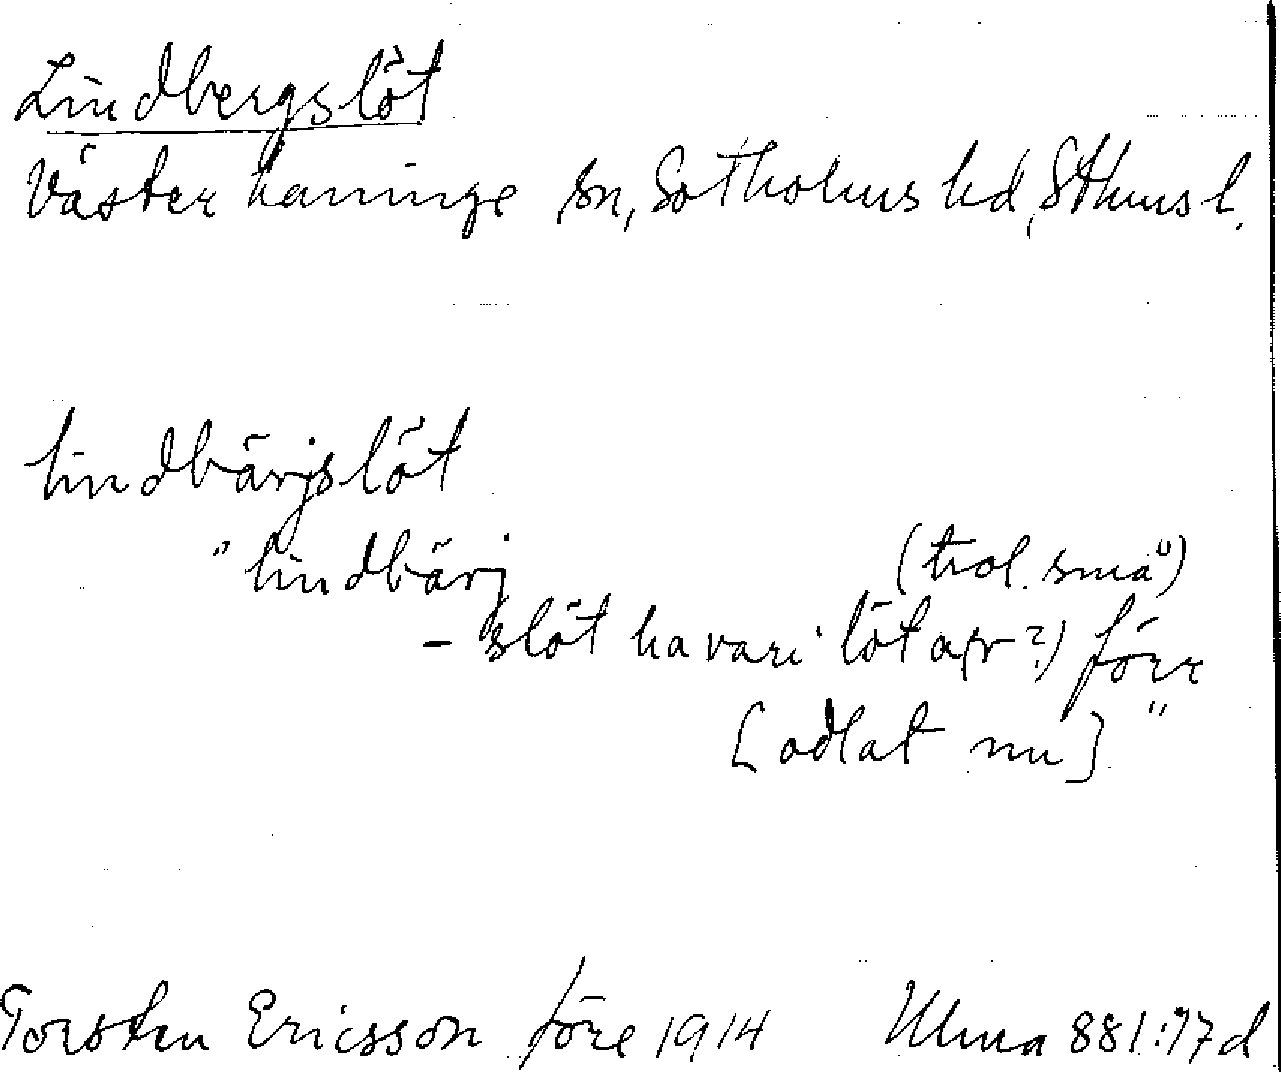 Lindbergslöt
Västerhaninge sn, Sotholms hd, Sthms l.
lindbärjslöt
"lindbärj (trol. små)
- slöt ha vari löta(r?) förr
[odlat nu]"
Torsten Ericsson före 1914 Ulma 881:17d